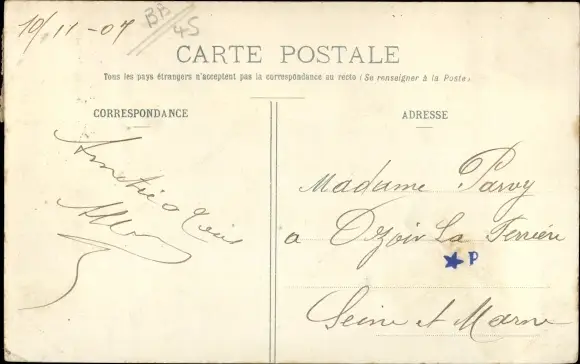 19/11-07
BB
45
CARTE POSTALE
Tous les pays étrangers n'acceptent pas la correspondance au recto (Se renseigner à la Poste.)
CORRESPONDANCE
ADRESSE
Madame Parvy
a Ozoir La Ferrière
P
Seine et Marne